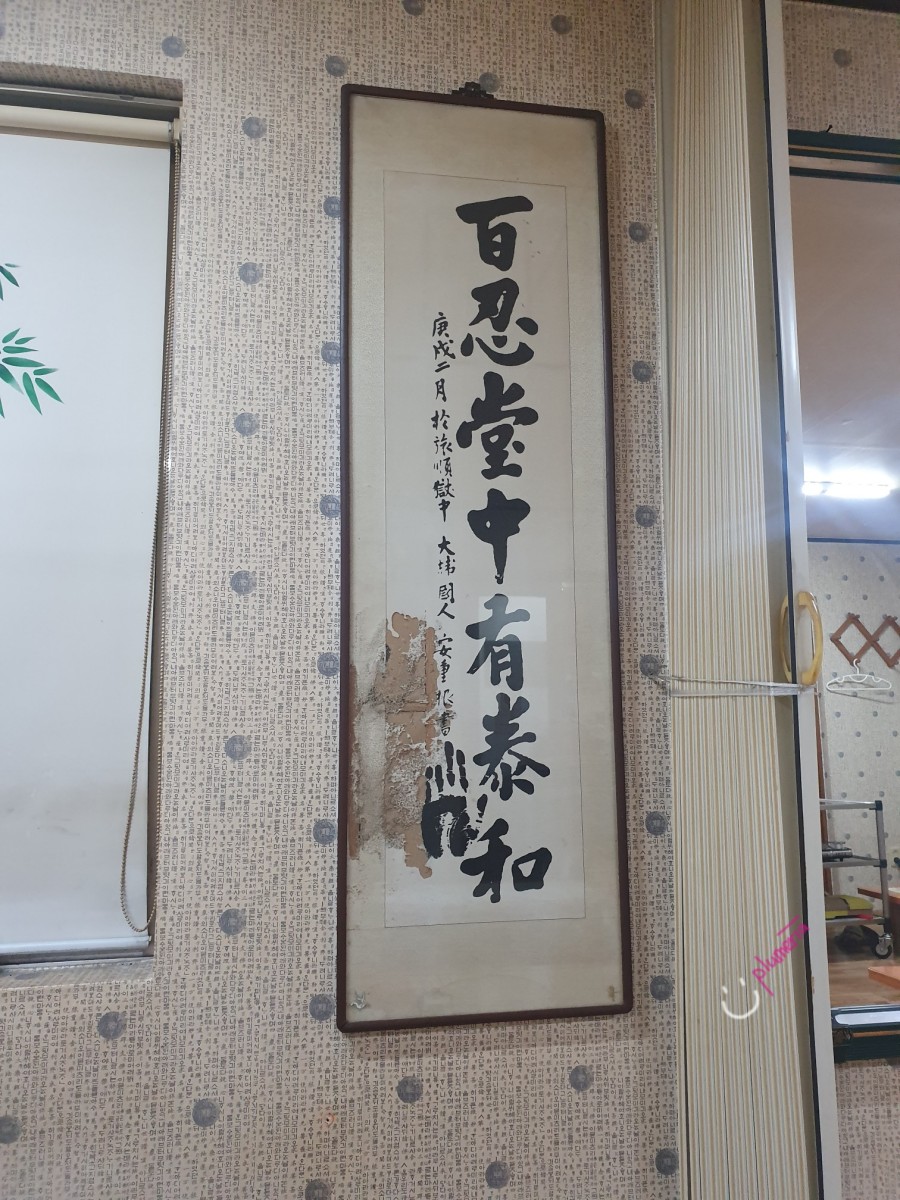 百忍堂中有泰和
庚戌二月 於旅順獄中 大韓國人 安重根書
plumeria